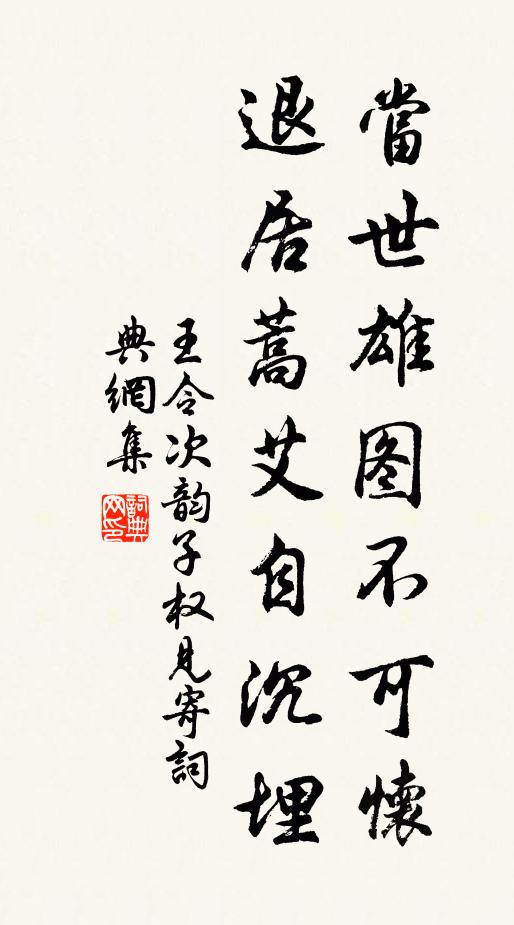 當世雄图不可懷
退居蒿艾自沉埋
王令次韵子权見寄詞
典網集
詞典網印